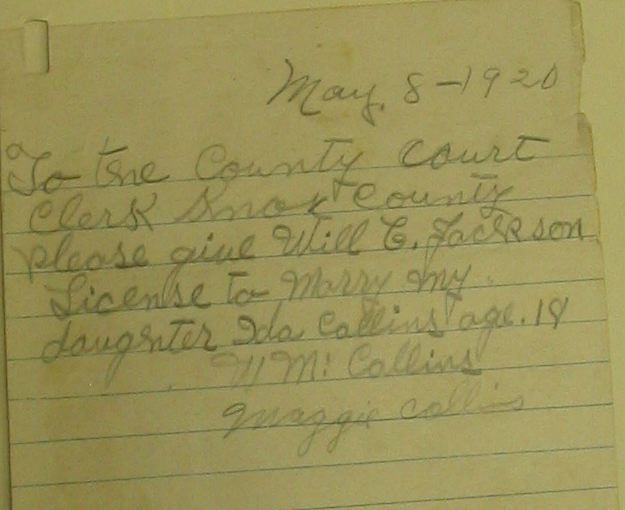 May. 8-1920
To the County Court
Clerk Knox County
please give Will C. Jackson
License to Marry My
daughter Ida Collins age. 18
Collins
Maggie Collins